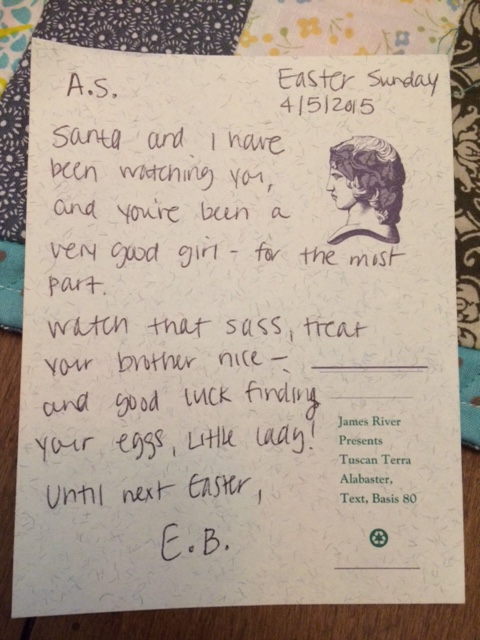 A.S.
Easter Sunday
4/5/2015
Santa and I have
been watching you,
and you're been a
very good girl - for the most
part.
Watch that sass, treat
your brother nice -
and good luck finding
your eggs, little lady!
Until next Easter,
E.B.
James River
Presents
Tuscan Terra
Alabaster,
Text, Basis 80